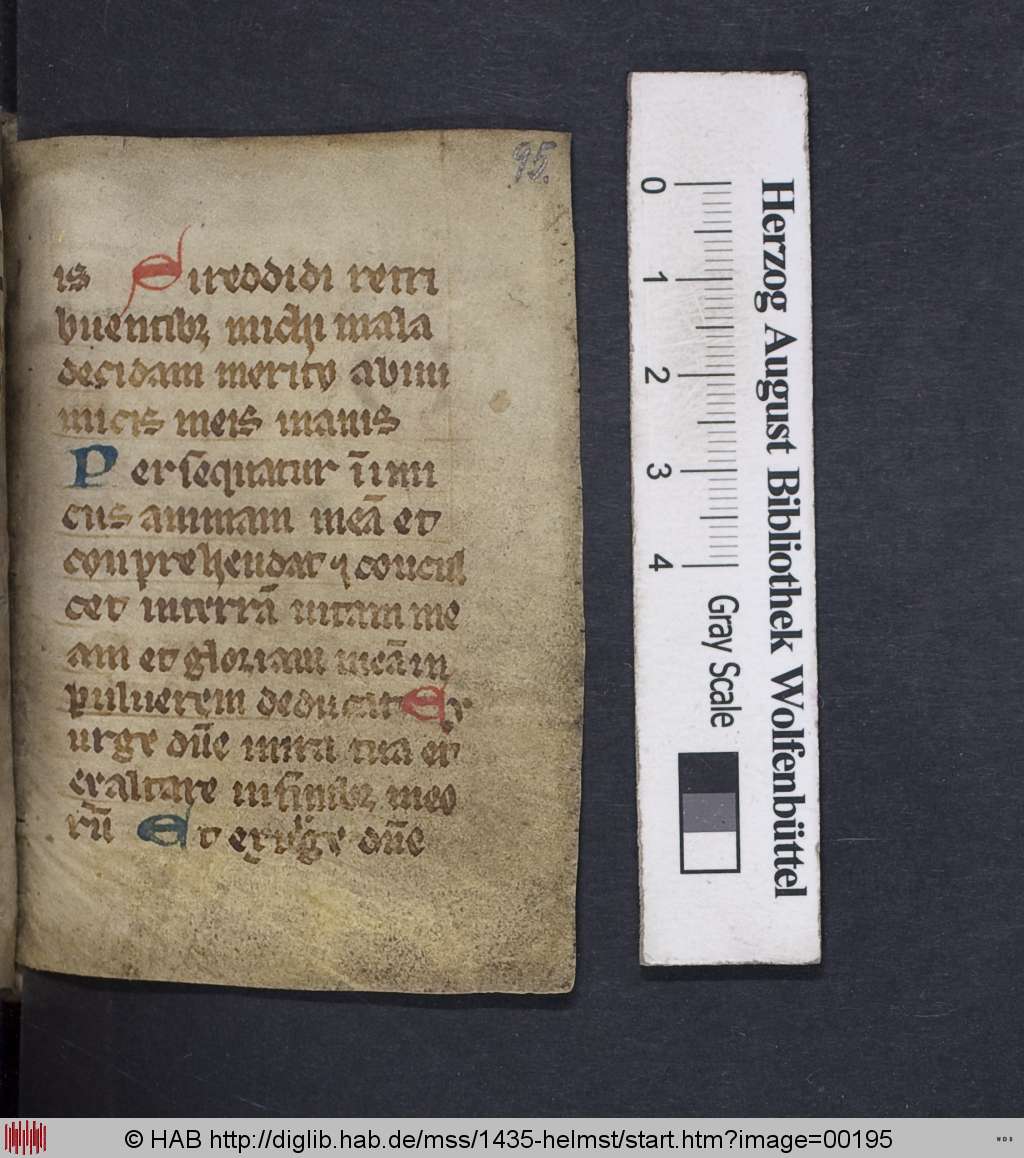 95.
is Si reddidi retri
buentibꝫ michi mala
decidam merito ab ini
micis meis inanis
Persequatur īimi
cus animam meā et
conprehendat ⁊ concul
cet in terrā uitam me
am et gloriam meā in
puluerem deducat Ex
urge dn̄e in ira tua et
exaltare in finibꝫ meo
rū Et exurge dn̄e
0 1 2 3 4
Gray Scale
Herzog August Bibliothek Wolfenbüttel
© HAB http://diglib.hab.de/mss/1435-helmst/start.htm?image=00195